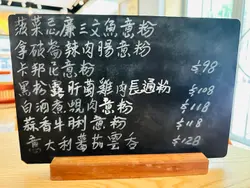 菠菜忌廉三文魚意粉
拿破崙辣肉腸意粉
卡邦尼意粉 $98
黑松露肝菌雞肉長通粉 $108
白酒煮蜆肉意粉 $118
蒜香牛脷意粉 $118
意大利蕃茄雲吞 $128